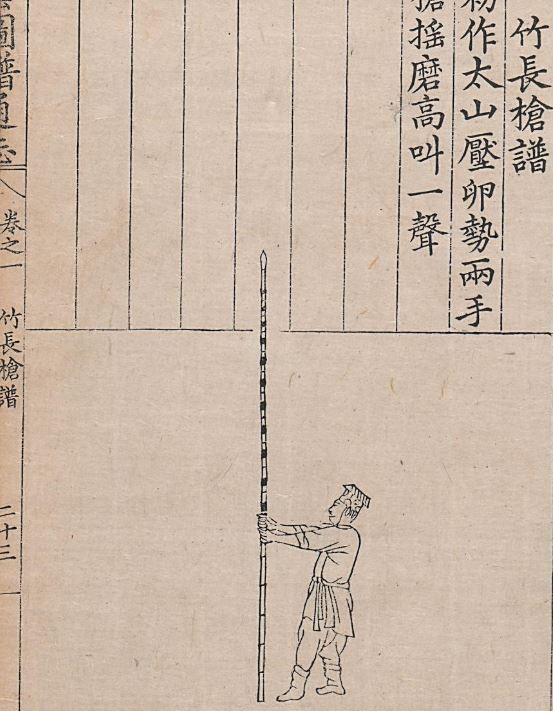 竹長槍譜
初作太山壓卵勢兩手
槍搖磨高叫一聲
圖譜通志
卷之一
竹長槍譜
二十三